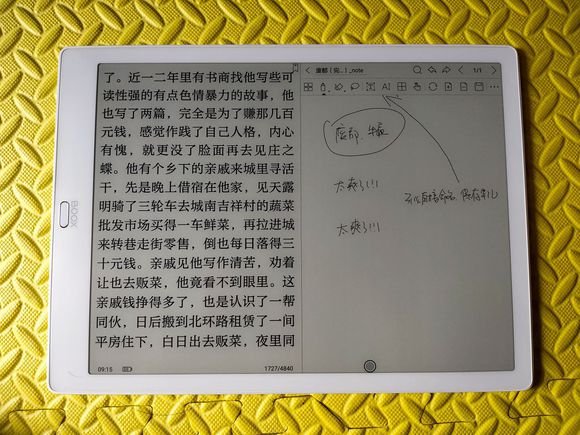 了。近一二年里有书商找他写些可
读性强的有点色情暴力的故事，他
也写了两篇，完全是为了赚那几百
元钱，感觉作践了自己人格，内心
有愧，就更没了脸面再去见庄之
蝶。他有个乡下的亲戚来城里寻活
干，先是晚上借宿在他家，见天露
明骑了三轮车去城南吉祥村的蔬菜
批发市场买得一车鲜菜，再拉进城
来转巷走街零售，倒也每日落得三
十元钱。亲戚见他写作清苦，劝着
让也去贩菜，他竟看不到眼里。这
亲戚钱挣得多了，也是认识了一帮
同伙，日后搬到北环路租赁了一间
平房住下，白日出去贩菜，夜里同
09:15
1727/4840
废都 [完...]_note
1/1
废都
太爽了!!!
太爽了!!!
BOOX